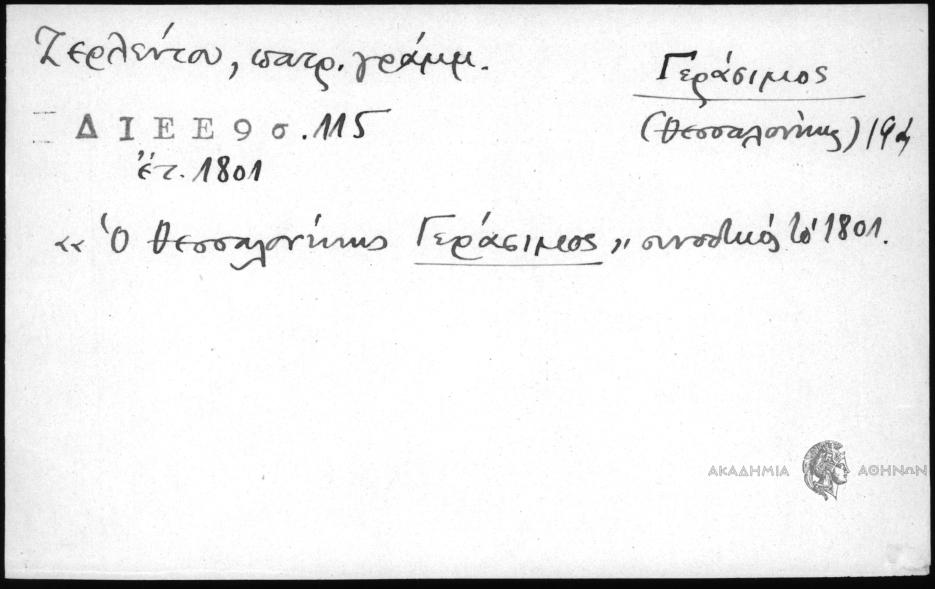 Ζερλέντου, πατρ. γράμμ.
Γεράσιμος
ΔΙΕΕ 9 σ. 115
(Θεσσαλονίκης)
ἔτ. 1801
« Ὁ Θεσσαλονίκης Γεράσιμος,, συνοδικός τό 1801.
ΑΚΑΔΗΜΙΑ ΑΘΗΝΩΝ